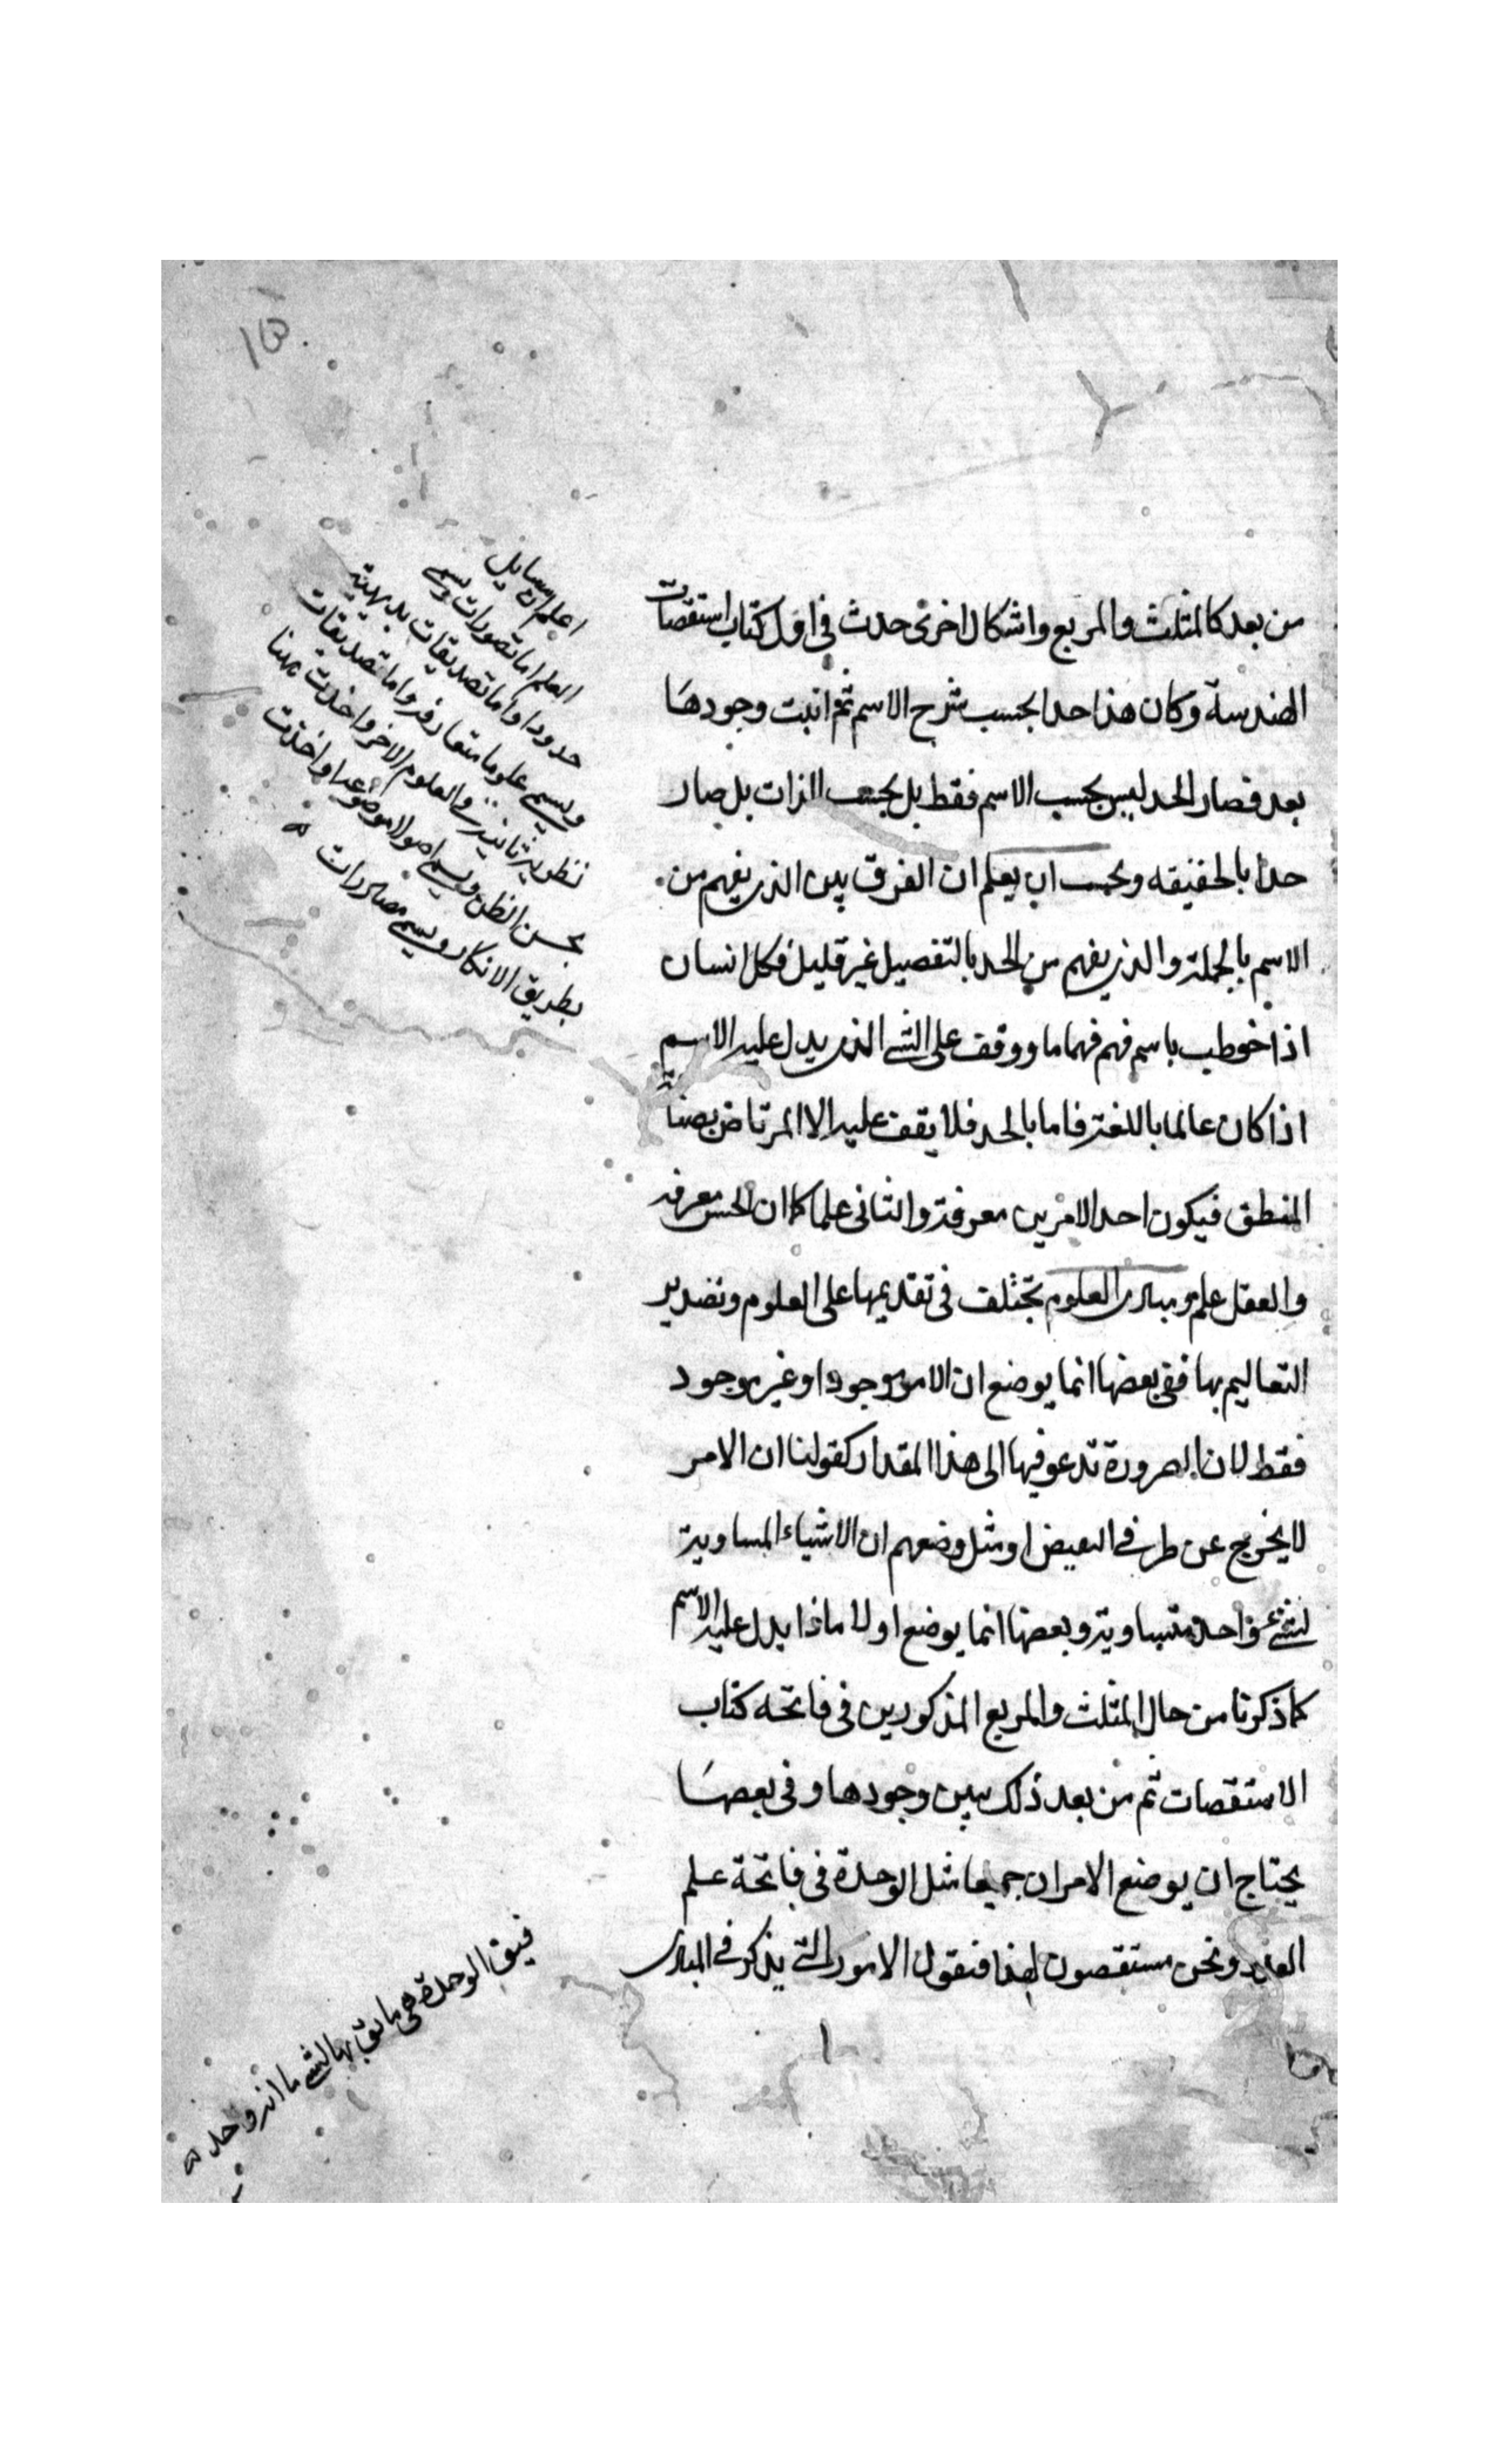 من بعد كالمثلث والمربع واشكال اخرى حدث فى اول كتاب استقصات
الهندسة وكان هذا حدا بحسب شرح الاسم ثم اثبت وجودها
بعد فصار الحد ليس بحسب الاسم فقط بل بحسب الذات بل صار
حدا بالحقيقه ويجب ان يعلم ان الفرق بين الذى يفهم من
الاسم بالجملة والذى يفهم من الحد بالتفصيل غير قليل فكل انسان
اذا خوطب باسم فهم فهما ما ووقف على الشئ الذى يدل عليه الاسم
اذا كان عالما باللغة فاما بالحد فلا يقف عليه الا المرتاض بصناعة
المنطق فيكون احد الامرين معرفة والثانى علما كما ان الحس معرفة
والعقل علم ومبادى العلوم تختلف فى تقديمها على العلوم وتصدير
التعاليم بها ففى بعضها انما يوضع ان الامر موجود او غير موجود
فقط لان الضرورة تدعو فيها الى هذا المقدار كقولنا ان الامر
لا يخرج عن طرفى النقيض او مثل وضعهم ان الاشياء المساوية
لشئ واحد متساوية وبعضها انما يوضع اولا ماذا يدل عليه الاسم
كما ذكرنا من حال المثلث والمربع المذكورين فى فاتحه كتاب
الاستقصات ثم من بعد ذلك يبين وجودها وفى بعضها
يحتاج ان يوضع الامران جميعا مثل الوحدة فى فاتحة علم
العدد ونحن مستقصون لهذا فنقول الامور التى يذكر فى المبادى
اعلم ان مسايل
العلم اما تصورات ويسمى
حدودا واما تصديقات بديهية
ويسمى علوما متعارفة واما تصديقات
نظرية فى العلوم الاخر واخذت ههنا
بحسن الظن ويسمى اصولا موضوعة او اخذت
بطريق الانكار ويسمى مصادرات
فيق الوحدة هى ما يق بها لشئ ما انه واحد